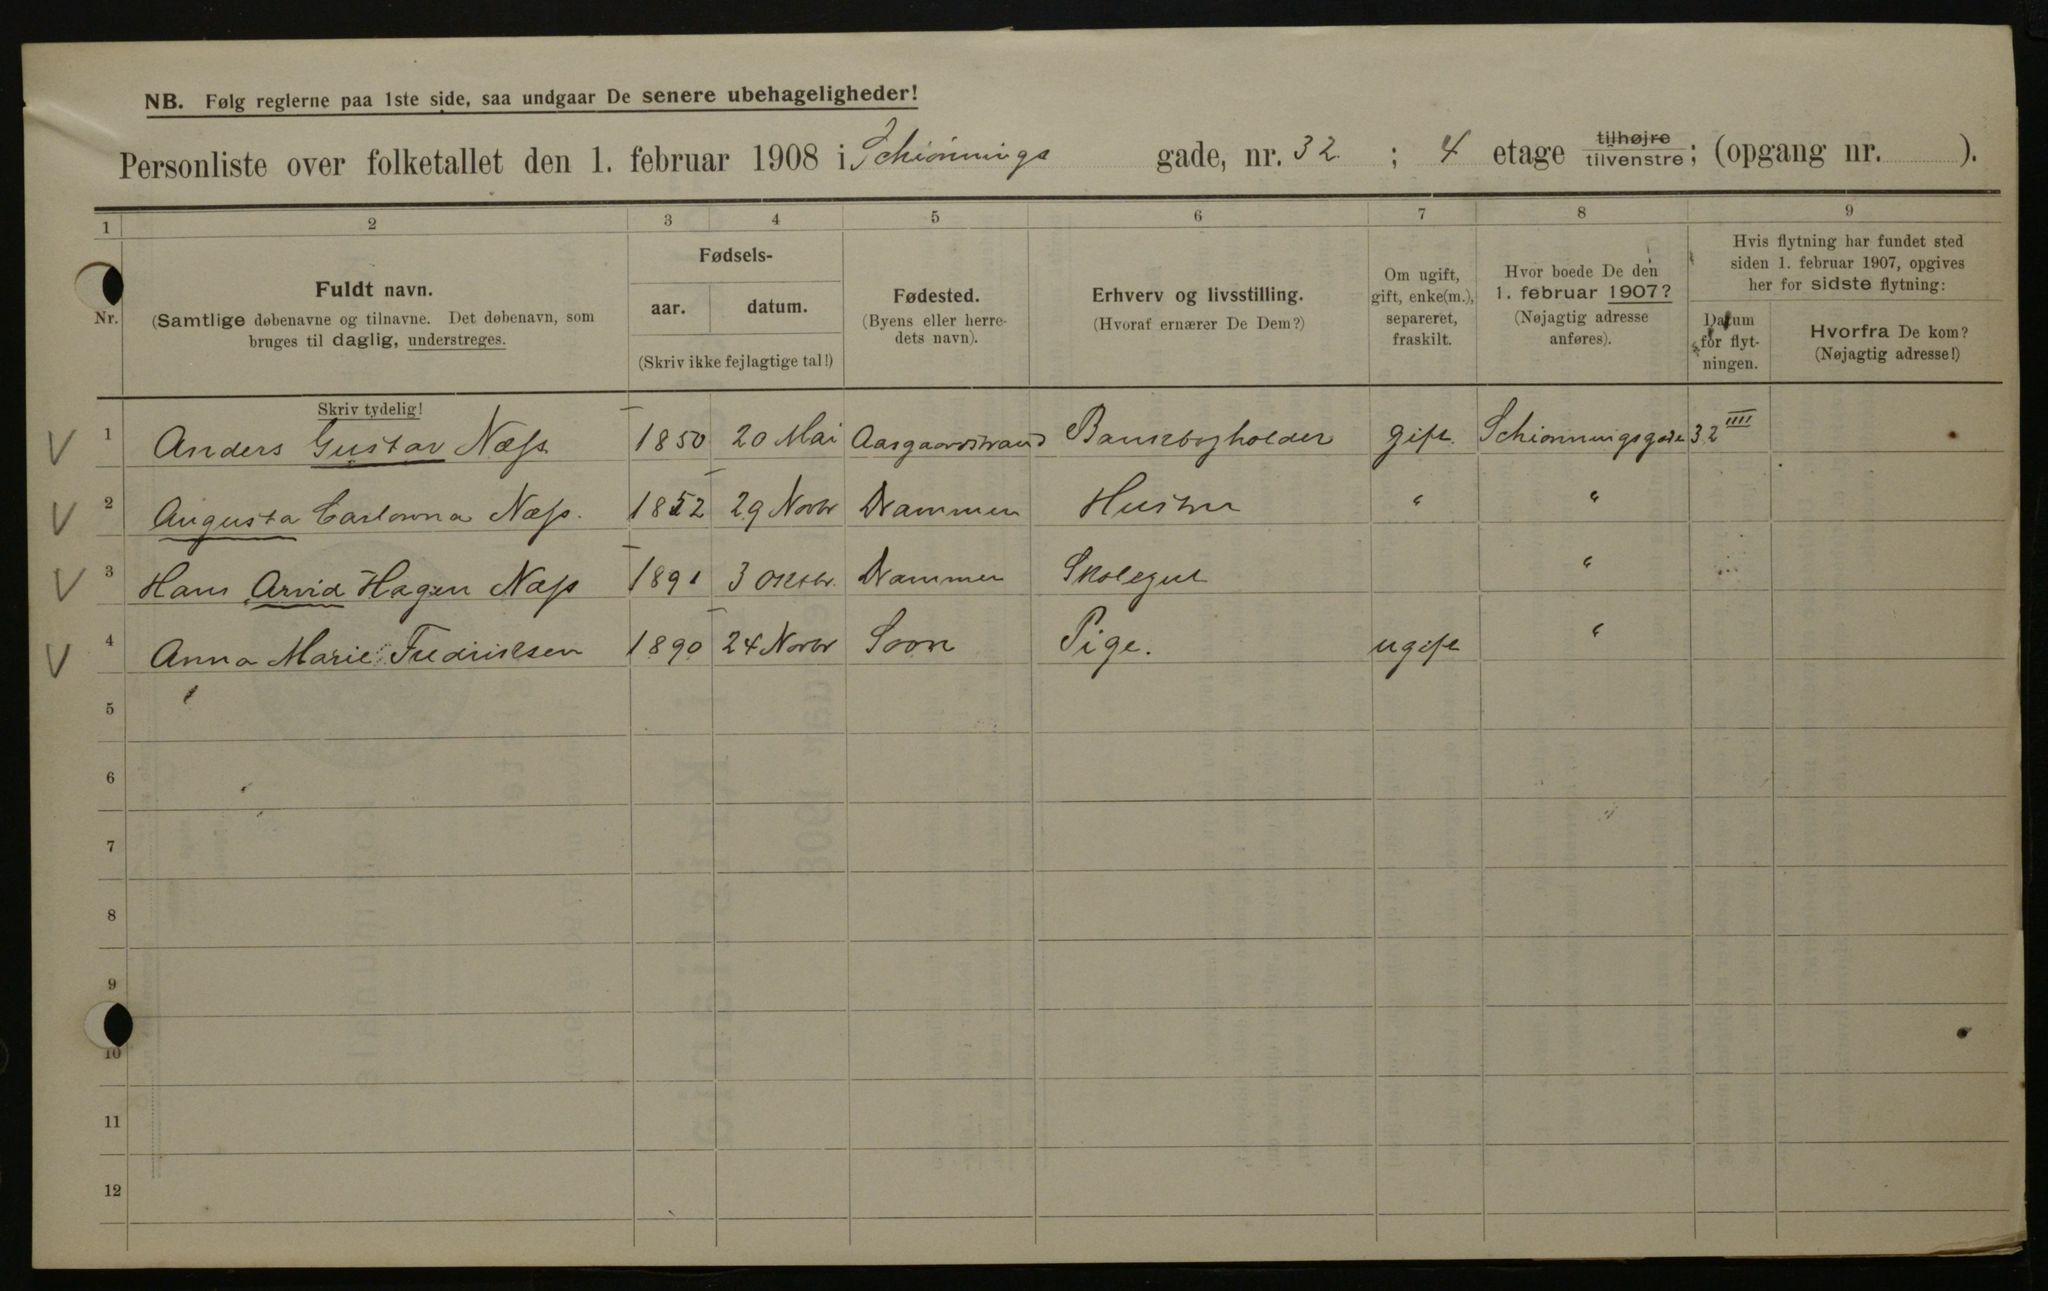 NB. Følg reglerne paa 1ste side, saa undgaar De senere ubehageligheder!
Personliste over folketallet den 1. februar 1908 i Schiønnings gade, nr. 32 ; 4 etage tilhøjre tilvenstre; (opgang nr. ).
1 2 3 4 5 6 7 8 9
Nr.
Fuldt navn.
(Samtlige døbenavne og tilnavne. Det døbenavn, som
bruges til daglig, understreges.
Skriv tydelig!
Fødsels-
aar. datum.
(Skriv ikke fejlagtige tal!)
Fødested.
(Byens eller herre-
dets navn).
Erhverv og livsstilling.
(Hvoraf ernærer De Dem?)
Om ugift,
gift, enke(m.),
separeret,
fraskilt.
Hvor boede De den
1. februar 1907?
(Nøjagtig adresse
anføres).
Hvis flytning har fundet sted
siden 1. februar 1907, opgives
her for sidste flytning:
Datum
for flyt-
ningen.
Hvorfra De kom?
(Nøjagtig adresse!)
V 1 Anders Gustav Næss 1850 20 Mai Aasgaardstrand Bankbogholder gift. Schiønningsgade 32 IIII
V 2 Augusta Carlowna Næss. 1852 29 Novbr Drammen Hustru " "
V 3 Hans Arvid Hagen Næss 1891 3 Oktbr. Drammen Skolegut "
V 4 Anna Marie Fredriksen 1890 24 Novbr Soon Pige. ugift "
5
6
7
8
9
10
11
12